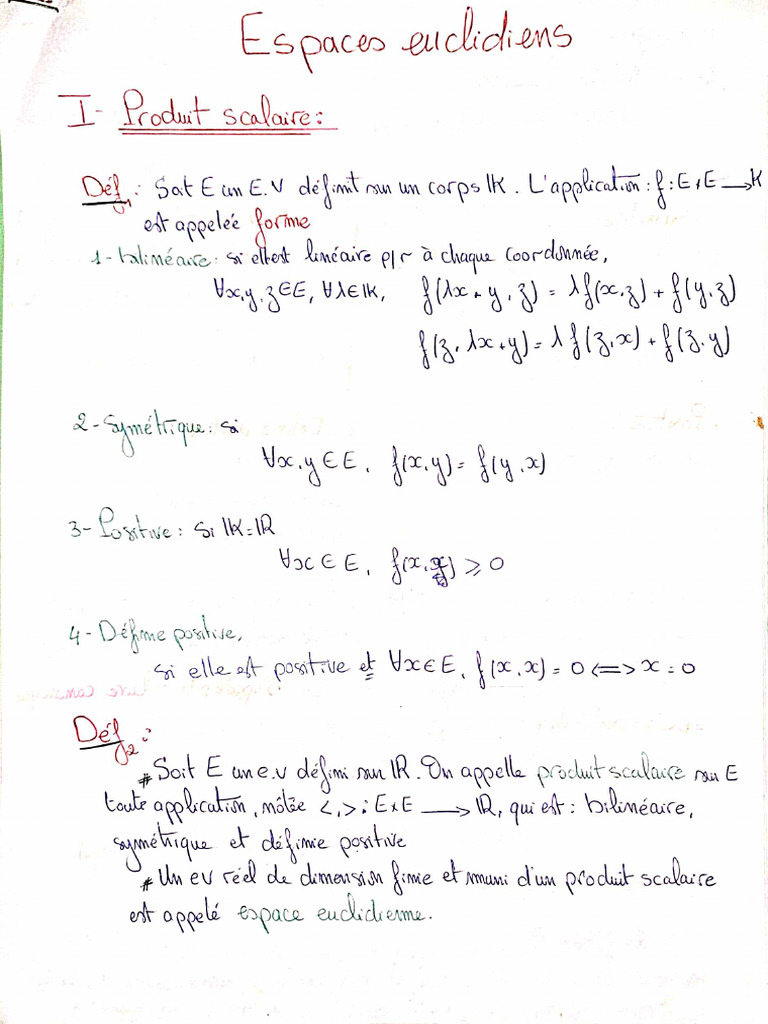 Espaces euclidiens
I- Produit scalaire:
Déf1: Soit E un E.V définit sur un corps IK. L'application: f: E×E → IK
est appeleé forme
1-bilinéaire: si elle est linéaire p/r à chaque coordonnée,
∀x,y,z∈E, ∀λ∈IK, f(λx+y,z) = λf(x,z) + f(y,z)
f(z,λx+y) = λf(z,x) + f(z,y)
2-Symétrique: si
∀x,y∈E, f(x,y) = f(y,x)
3-Positive: si IK=IR
∀x∈E, f(x,x) ≥ 0
4-Définie positive,
si elle est positive et ∀x∈E, f(x,x) = 0 <=> x = 0
Déf2:
* Soit E un e.v défini sur IR. On appelle produit scalaire sur E
toute application, nôtée <,>: E×E → IR, qui est: bilinéaire,
symétrique et définie positive
* Un ev réel de dimension finie et muni d'un produit scalaire
est appelé espace euclidienne.